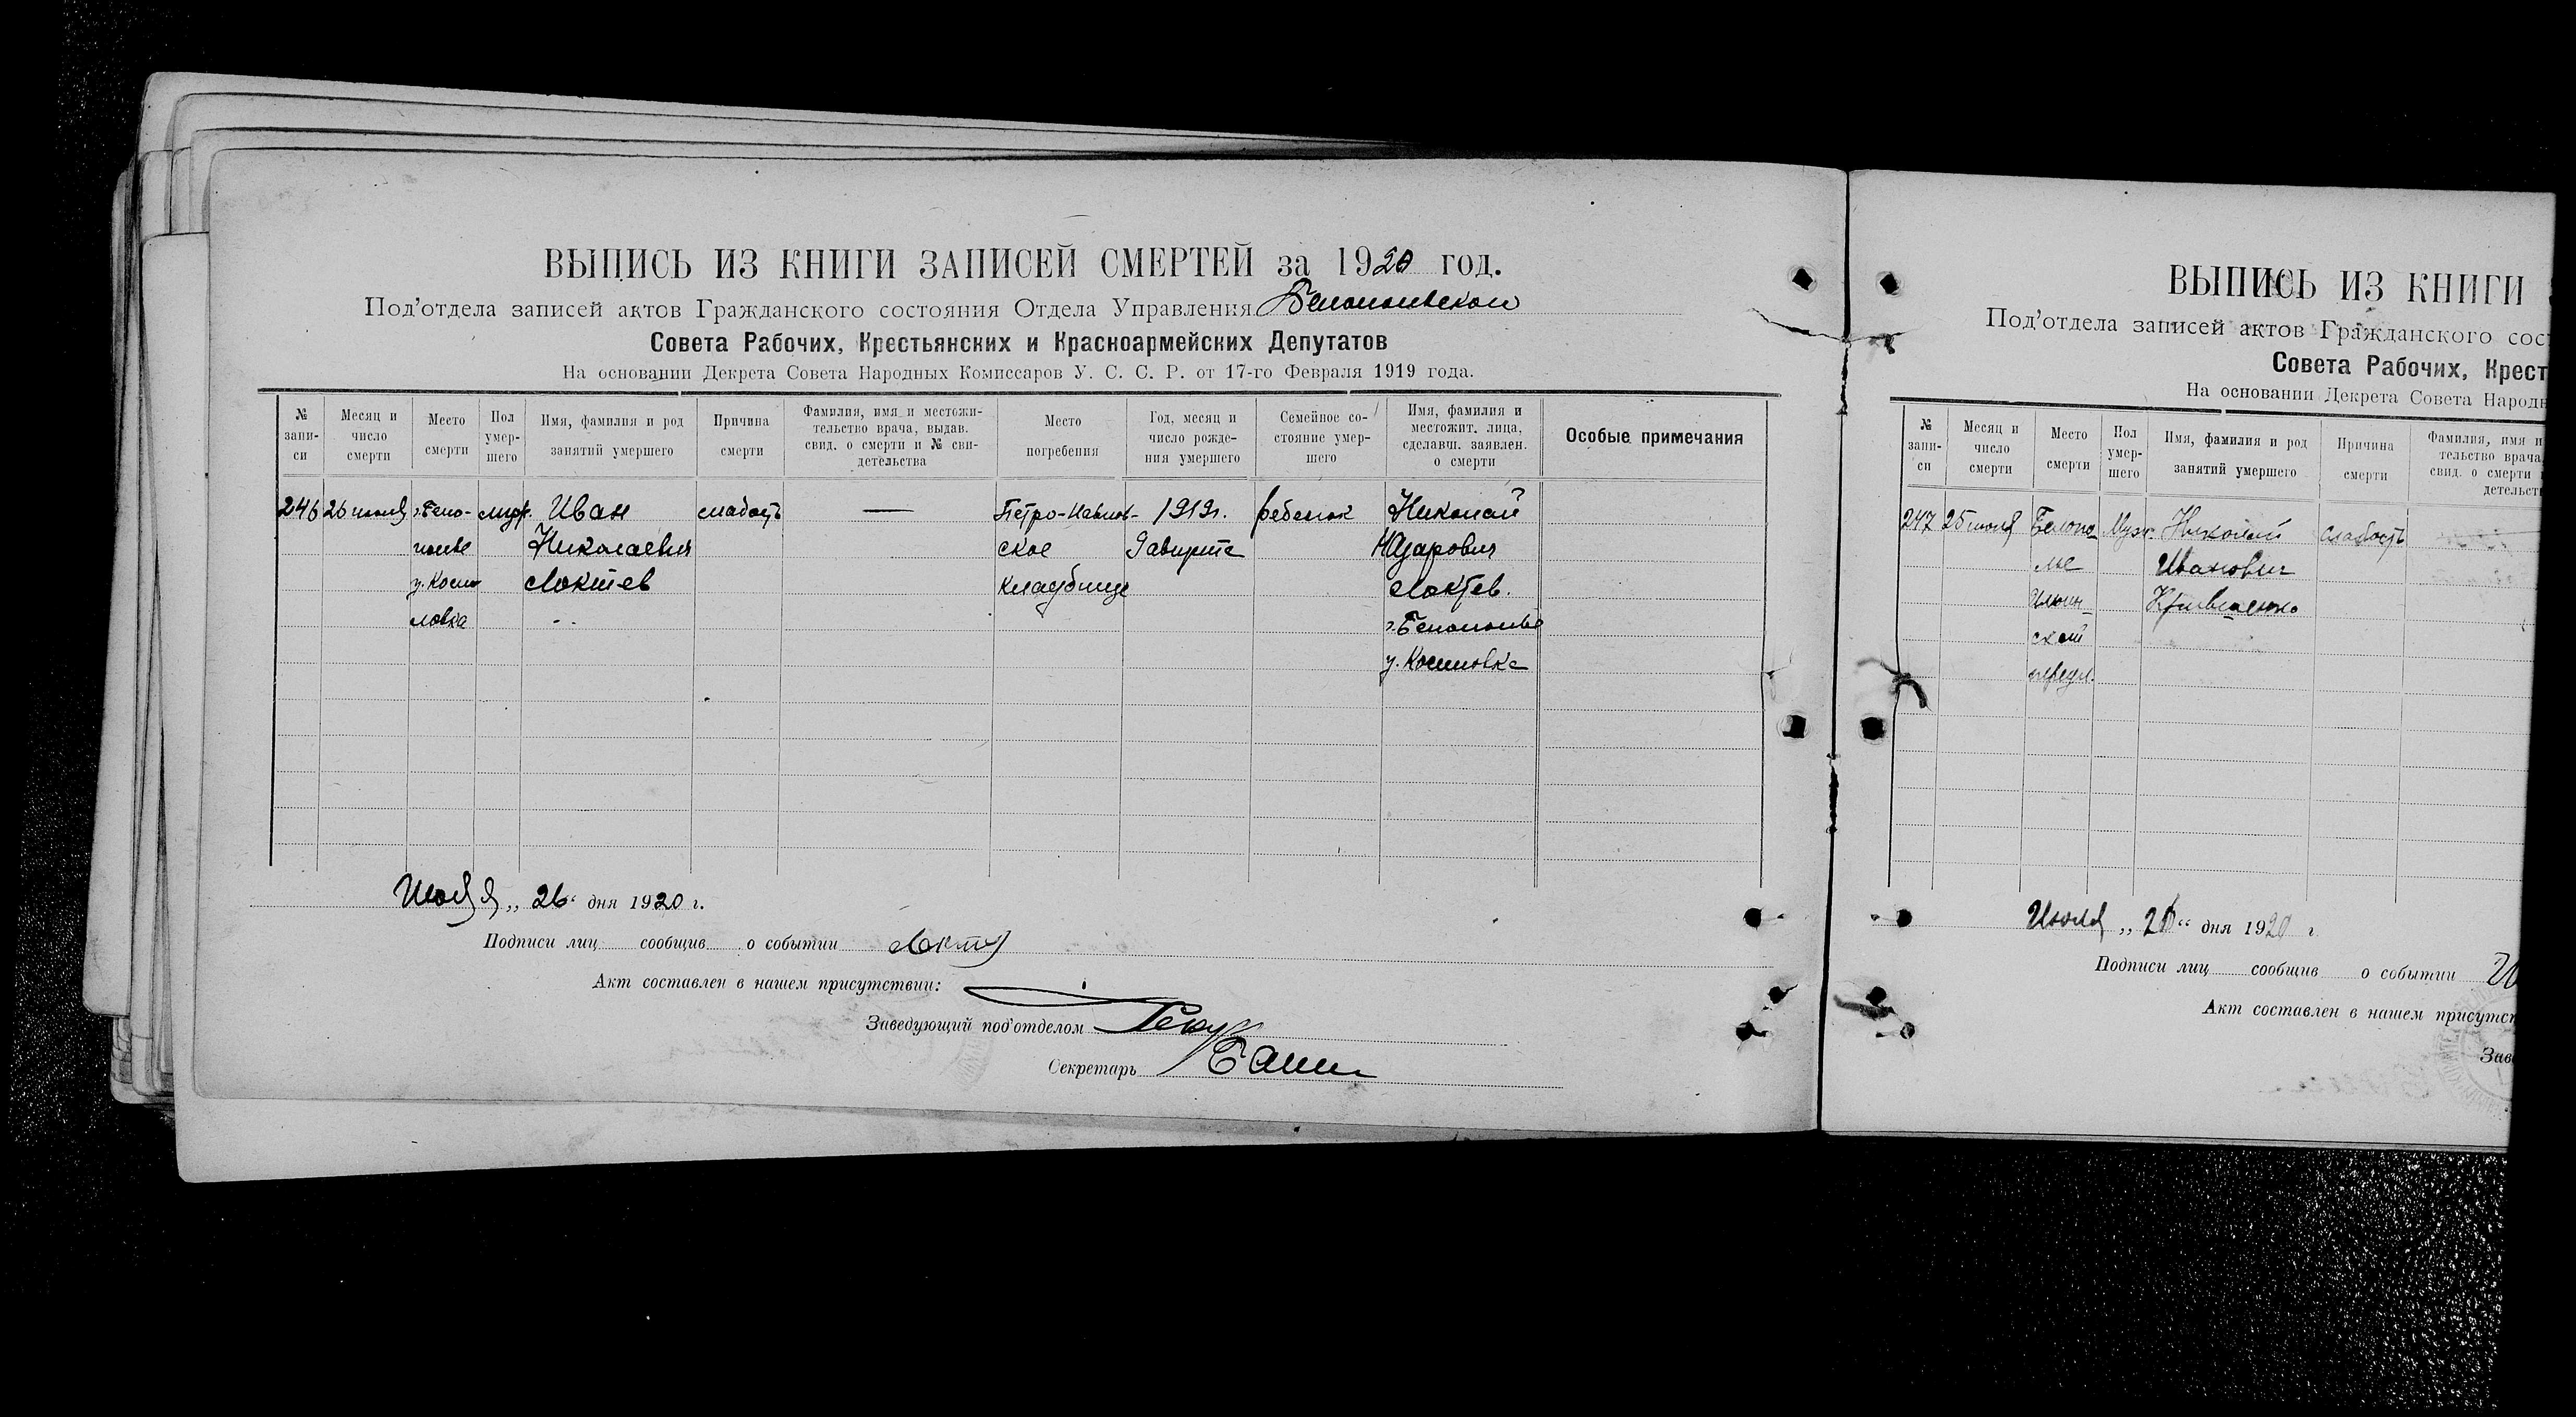 ВЫПИСЬ ИЗ КНИГИ ЗАПИСЕЙ СМЕРТЕЙ за 1920 год.
Под'отдела записей актов Гражданского состояния Отдела Управления Белопольской
Совета Рабочих, Крестьянских и Красноармейских Депутатов
На основании Декрета Совета Народных Комиссаров У. С. С. Р. от 17-го Февраля 1919 года.
№ запи-си
Месяц и число смерти
Место смерти
Пол умер-шего
Имя, фамилия и род занятий умершего
Причина смерти
Фамилия, имя и местожи-тельство врача, выдав. свид. о смерти и № сви-детельства
Место погребения
Год, месяц и число рожде-ния умершего
Семейное со-стояние умер-шего
Имя, фамилия и местожит. лица, сделавш. заявлен. о смерти
Особые примечания
246 26 июля г. Бело- муж. Иван слабость — Петро-Павлов- 1919г. ребенок Николай
полье Николаевич ское 9 августа Назарович
Локтев кладбище Локтев.
ловка г. Белополье
у. Косиловка
Июля „ 26 “ дня 1920 г.
Подписи лиц сообщив о событии
Акт составлен в нашем присутствии:
Заведующий под'отделом
Секретарь
ВЫПИСЬ ИЗ КНИГИ
Под'отдела записей актов Гражданского сос
Совета Рабочих, Крест
На основании Декрета Совета Народн
№ запи-си
Месяц и число смерти
Место смерти
Пол умер-шего
Имя, фамилия и род занятий умершего
Причина смерти
Фамилия, имя и тельство врача свид. о смерти детельст
247 25 июля Белопо- Муж. Николай слабость
лье Иванович
ской
Июля „ 26 “ дня 1920 г
Подписи лиц сообщив о событии
Акт составлен в нашем присутст
Зав